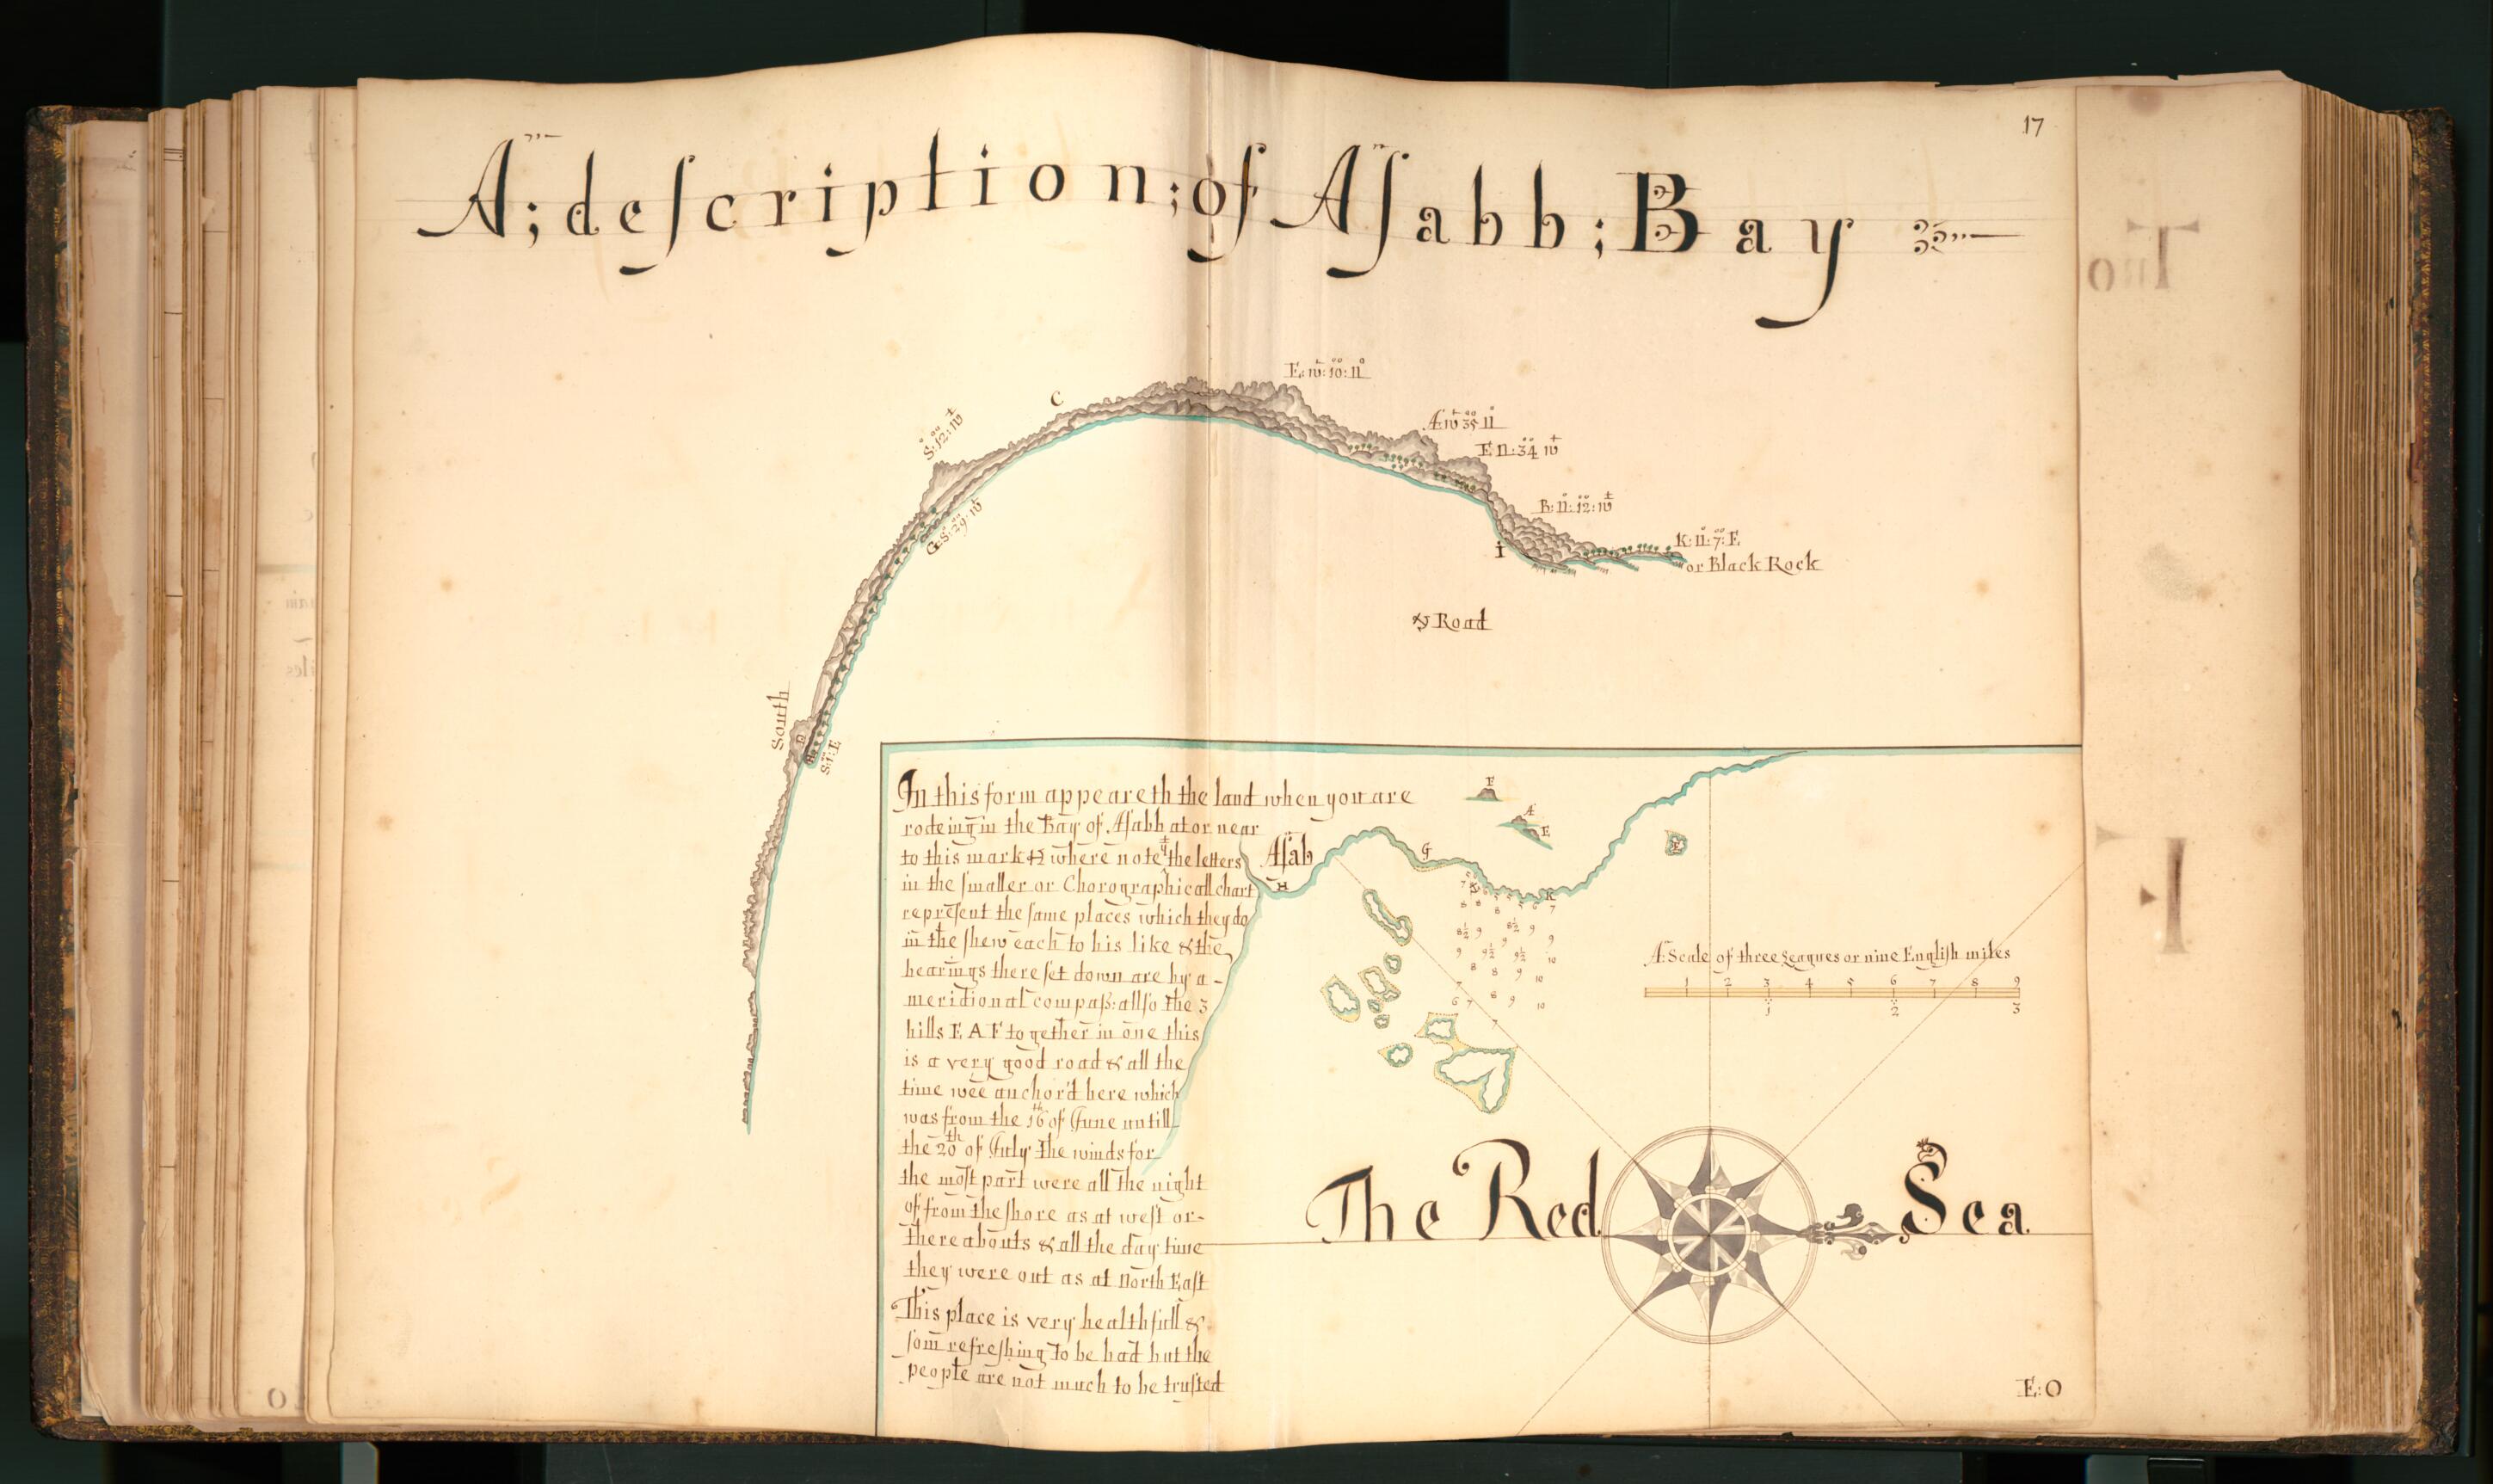 17
A; deſcription; of Aſabb; Bay
C
South
S: i: E
or Black Rock
K: 11: 7: E
I
Road
In this form appeareth the land when you are
rodeing in the Bay of Aſabb at or near
to this mark where note yt the letters
in the ſmaller or Chorographicall chart
repreſent the ſame places which they do
in the ſhew each to his like & the
bearings there ſet down are by a -
meridional compaß: allſo the 3
hills E A F together in one this
is a very good road & all the
time wee anchor'd here which
was from the 16th of June untill
the 20th of July the winds for
the moſt part were all the night
of from the ſhore as at weſt or-
thereabouts & all the day time
they were out as at North Eaſt
This place is very healthfull &
ſom refreſhing to be had but the
people are not much to be truſted
Aſab
H
G
F
Æ
E
K
A: Scale of three Leagues or nine Engliſh miles
1 2 3 4 5 6 7 8 9
1 2 3
The Red Sea
E: O